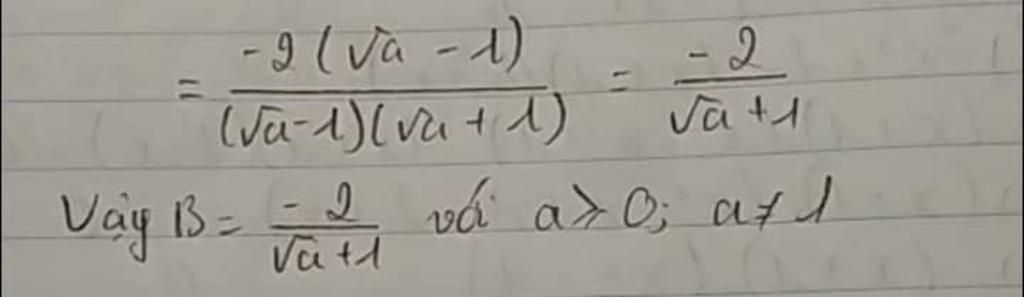 = \frac{-2(\sqrt{a} - 1)}{(\sqrt{a} - 1)(\sqrt{a} + 1)} = \frac{-2}{\sqrt{a} + 1}
Vậy B = \frac{-2}{\sqrt{a} + 1} với a ≥ 0; a ≠ 1